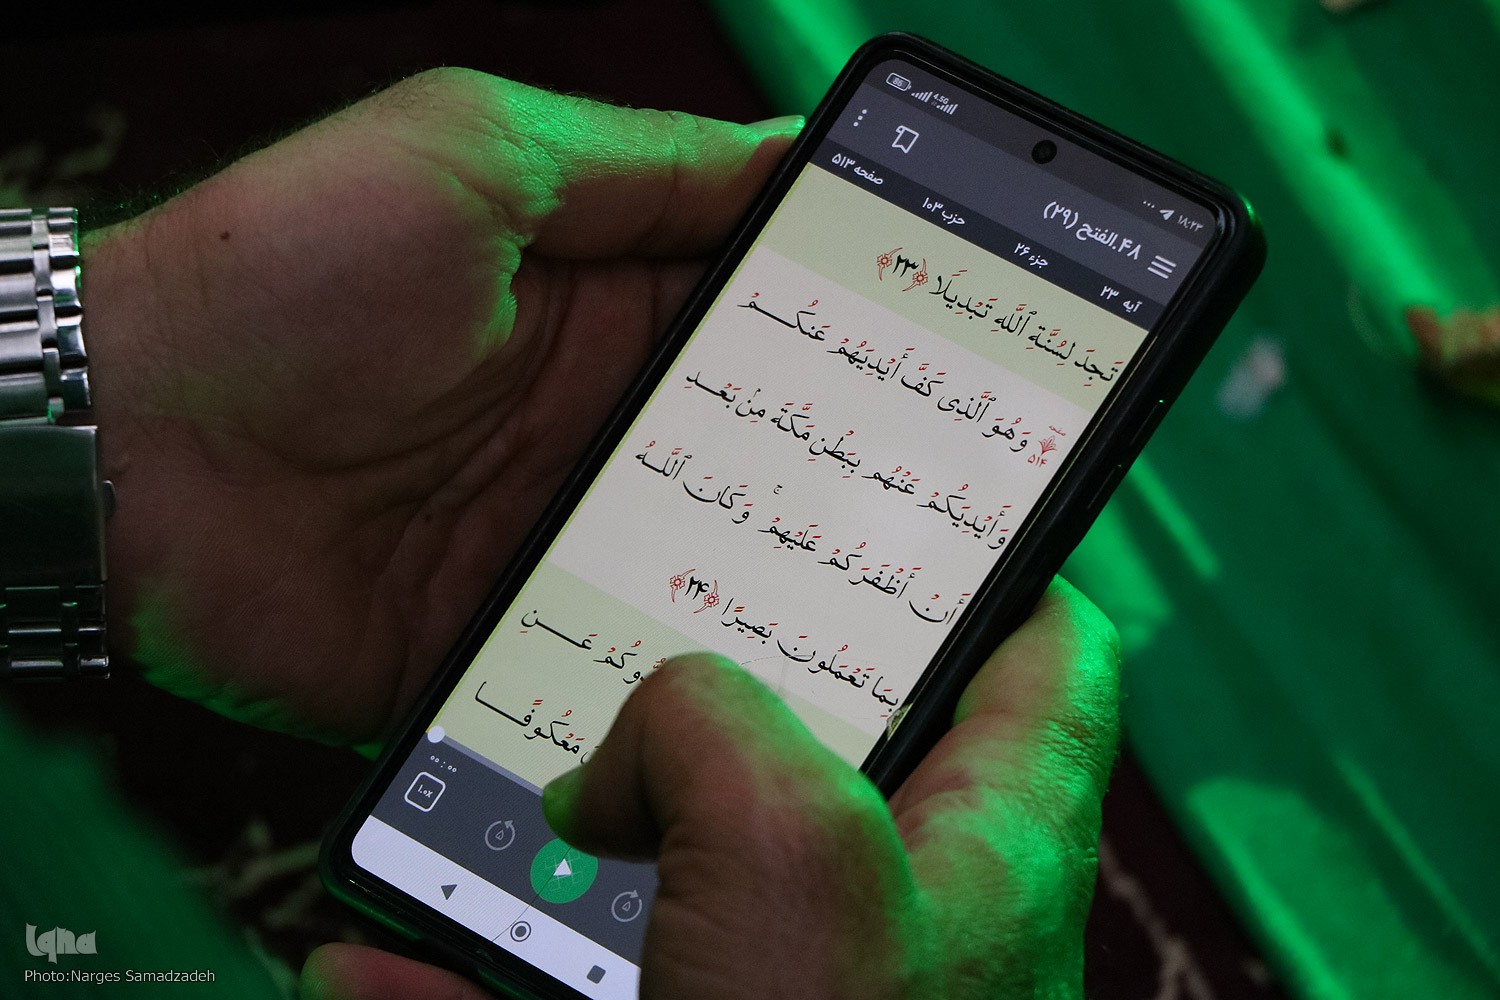 86
4.5G
۱۸:۲۳
۴۸.الفتح (۲۹)
آیه ۲۳ جزء ۲۶ حزب ۱۰۳ صفحه ۵۱۳
تَجِدَ لِسُنَّةِ ٱللَّهِ تَبْدِيلًا ﴿۲۳﴾
صفحه ۵۱۴
وَهُوَ ٱلَّذِى كَفَّ أَيْدِيَهُمْ عَنكُمْ
وَأَيْدِيَكُمْ عَنْهُم بِبَطْنِ مَكَّةَ مِنۢ بَعْدِ
أَنْ أَظْفَرَكُمْ عَلَيْهِمْ ۚ وَكَانَ ٱللَّهُ
بِمَا تَعْمَلُونَ بَصِيرًا ﴿۲۴﴾
عَنِ
مَعْكُوفًا
۰۰:۰۰
۱.۰x
۵
۵
Iqna
Photo:Narges Samadzadeh